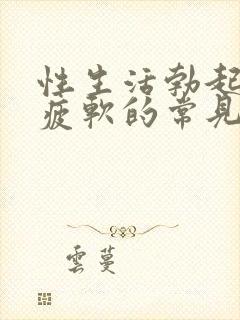 性生活勃起
疲軟的常見
雲蔓